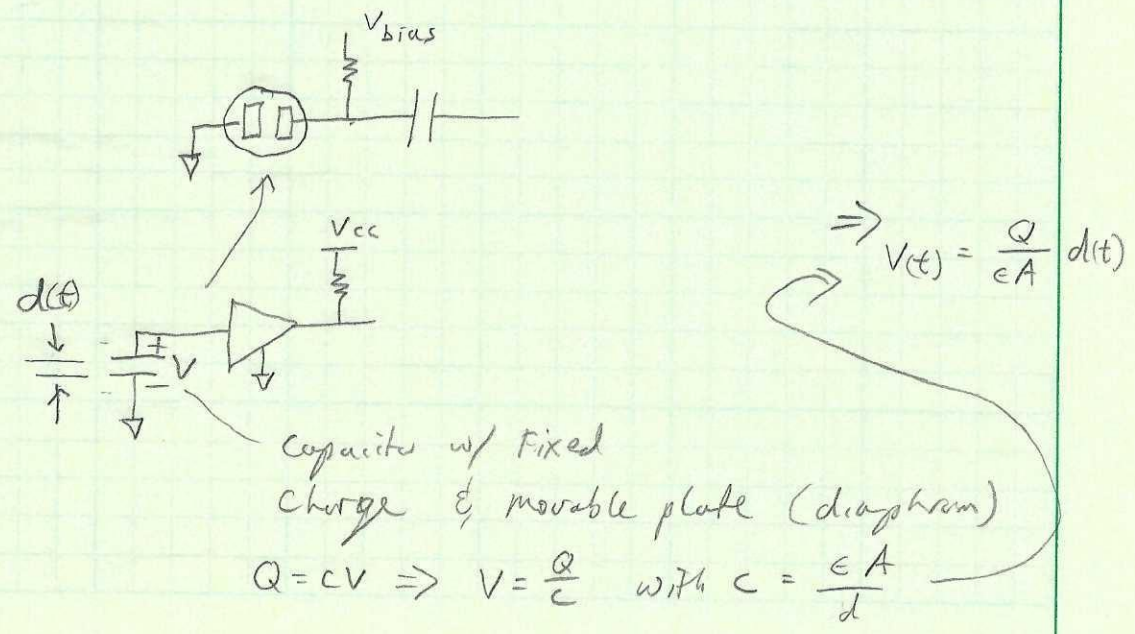 Vbias
Vcc
d(t)
+
V
−
⇒ V(t) = Q/ϵA d(t)
Capacitor w/ Fixed
Charge & movable plate (diaphram)
Q = CV ⇒ V = Q/C with C = ϵA/d